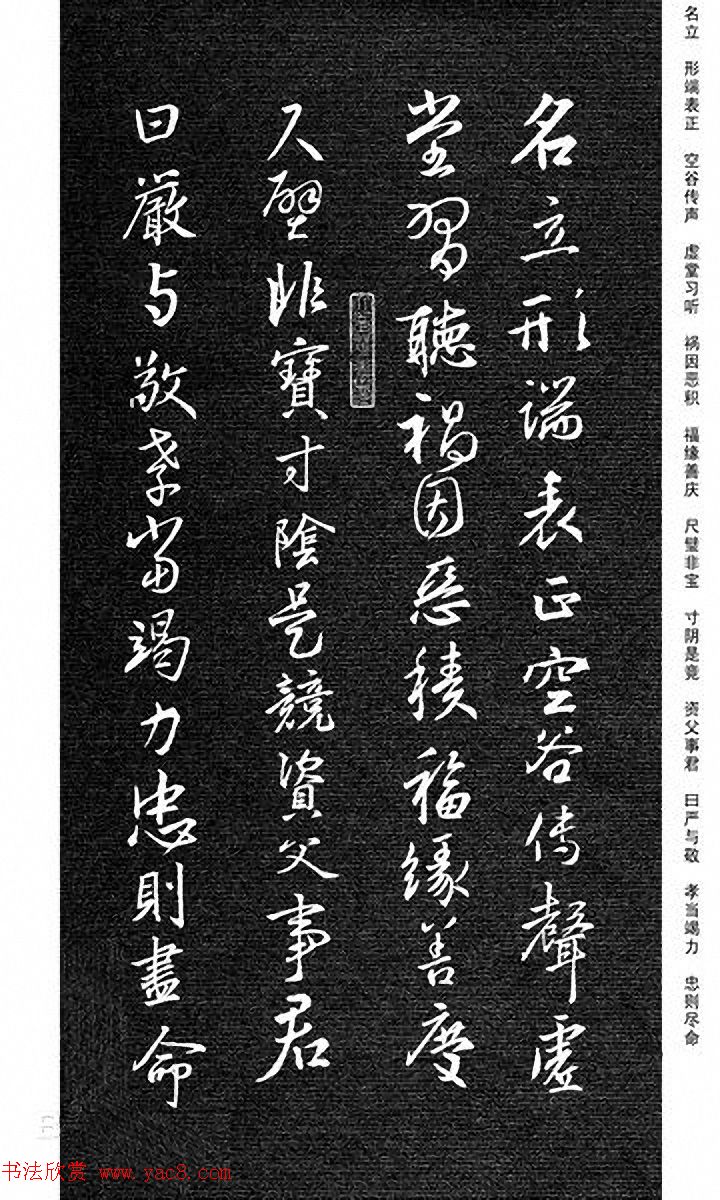 名立 形端表正 空谷传声 虚堂习听 祸因恶积 福缘善庆 尺璧非宝 寸阴是竞 资父事君 曰严与敬 孝当竭力 忠则尽命
名立形端表正空谷傳聲虛
堂習聽禍因惡積福緣善慶
尺璧非寶寸陰是競資父事君
曰嚴与敬孝當竭力忠則盡命
书法欣赏 www.yac8.com